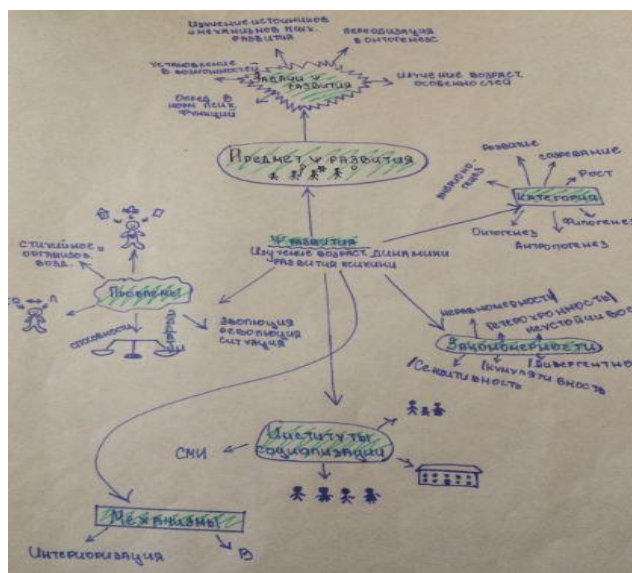 Изучение источников
и механизмов псих.
развития
периодизация
в онтогенезе
установление
в возможностей
Задачи ψ
развития
изучение возраст.
особенностей
опред в
норм псих.
функций
Предмет ψ развития
развитие
созревание
рост
Категории
Онтогенез
Филогенез
Антропогенез
ψ развития
Изучение возраст. динамики
развития психики
стихийное и
организов.
возд.
Проблемы
способности
эволюция
революция
ситуация
неравномерность
гетерохронность
неустойчивос
Закономерности
Сенситивность
кумулятивность
Дивергентно
Институты
социализации
СМИ
Механизмы
Интериоризация